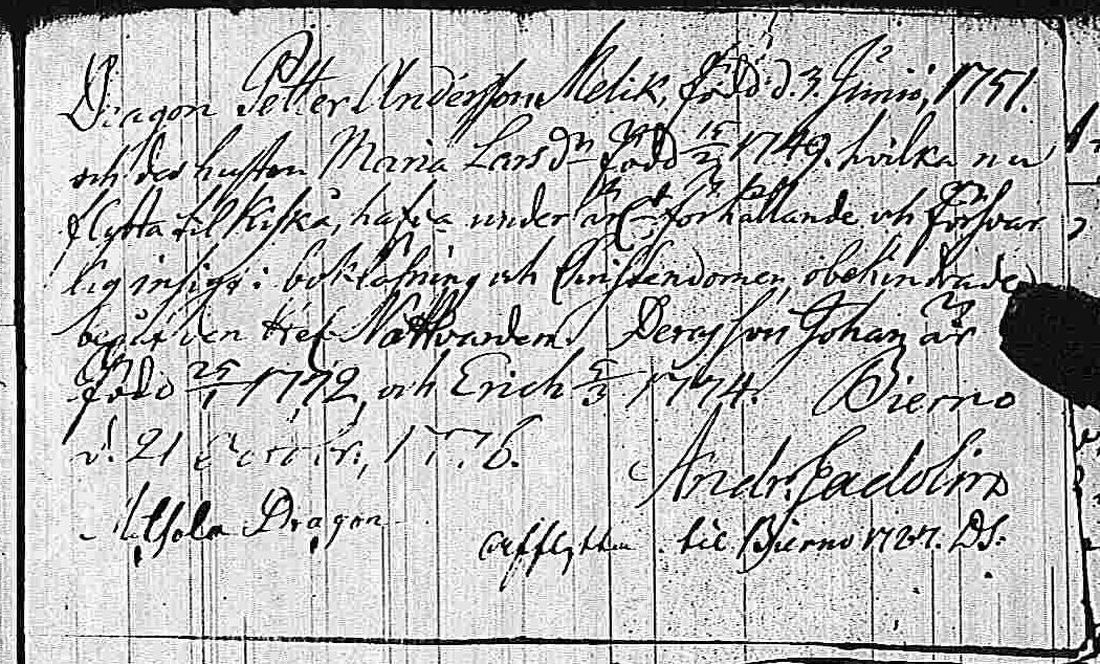 Dragon Petter Andersson Melik, född d. 3. Junii, 1751.
och des hustru Maria Larsdr född 15/2 1749. hvilka nu
flytta til Kisko, hafva under ärl:t förhållande och försvar
lig insigt i bokläsning och Christendomen, obehindrade
begått den H: Nattvarden. Deras son Johan är
född 25/1 1772, och Erich 5/3 1774. Bierno
d. 21 1776.
Andr. Gadolin
Dragon
afflyttu til Bierno 1727. DS.